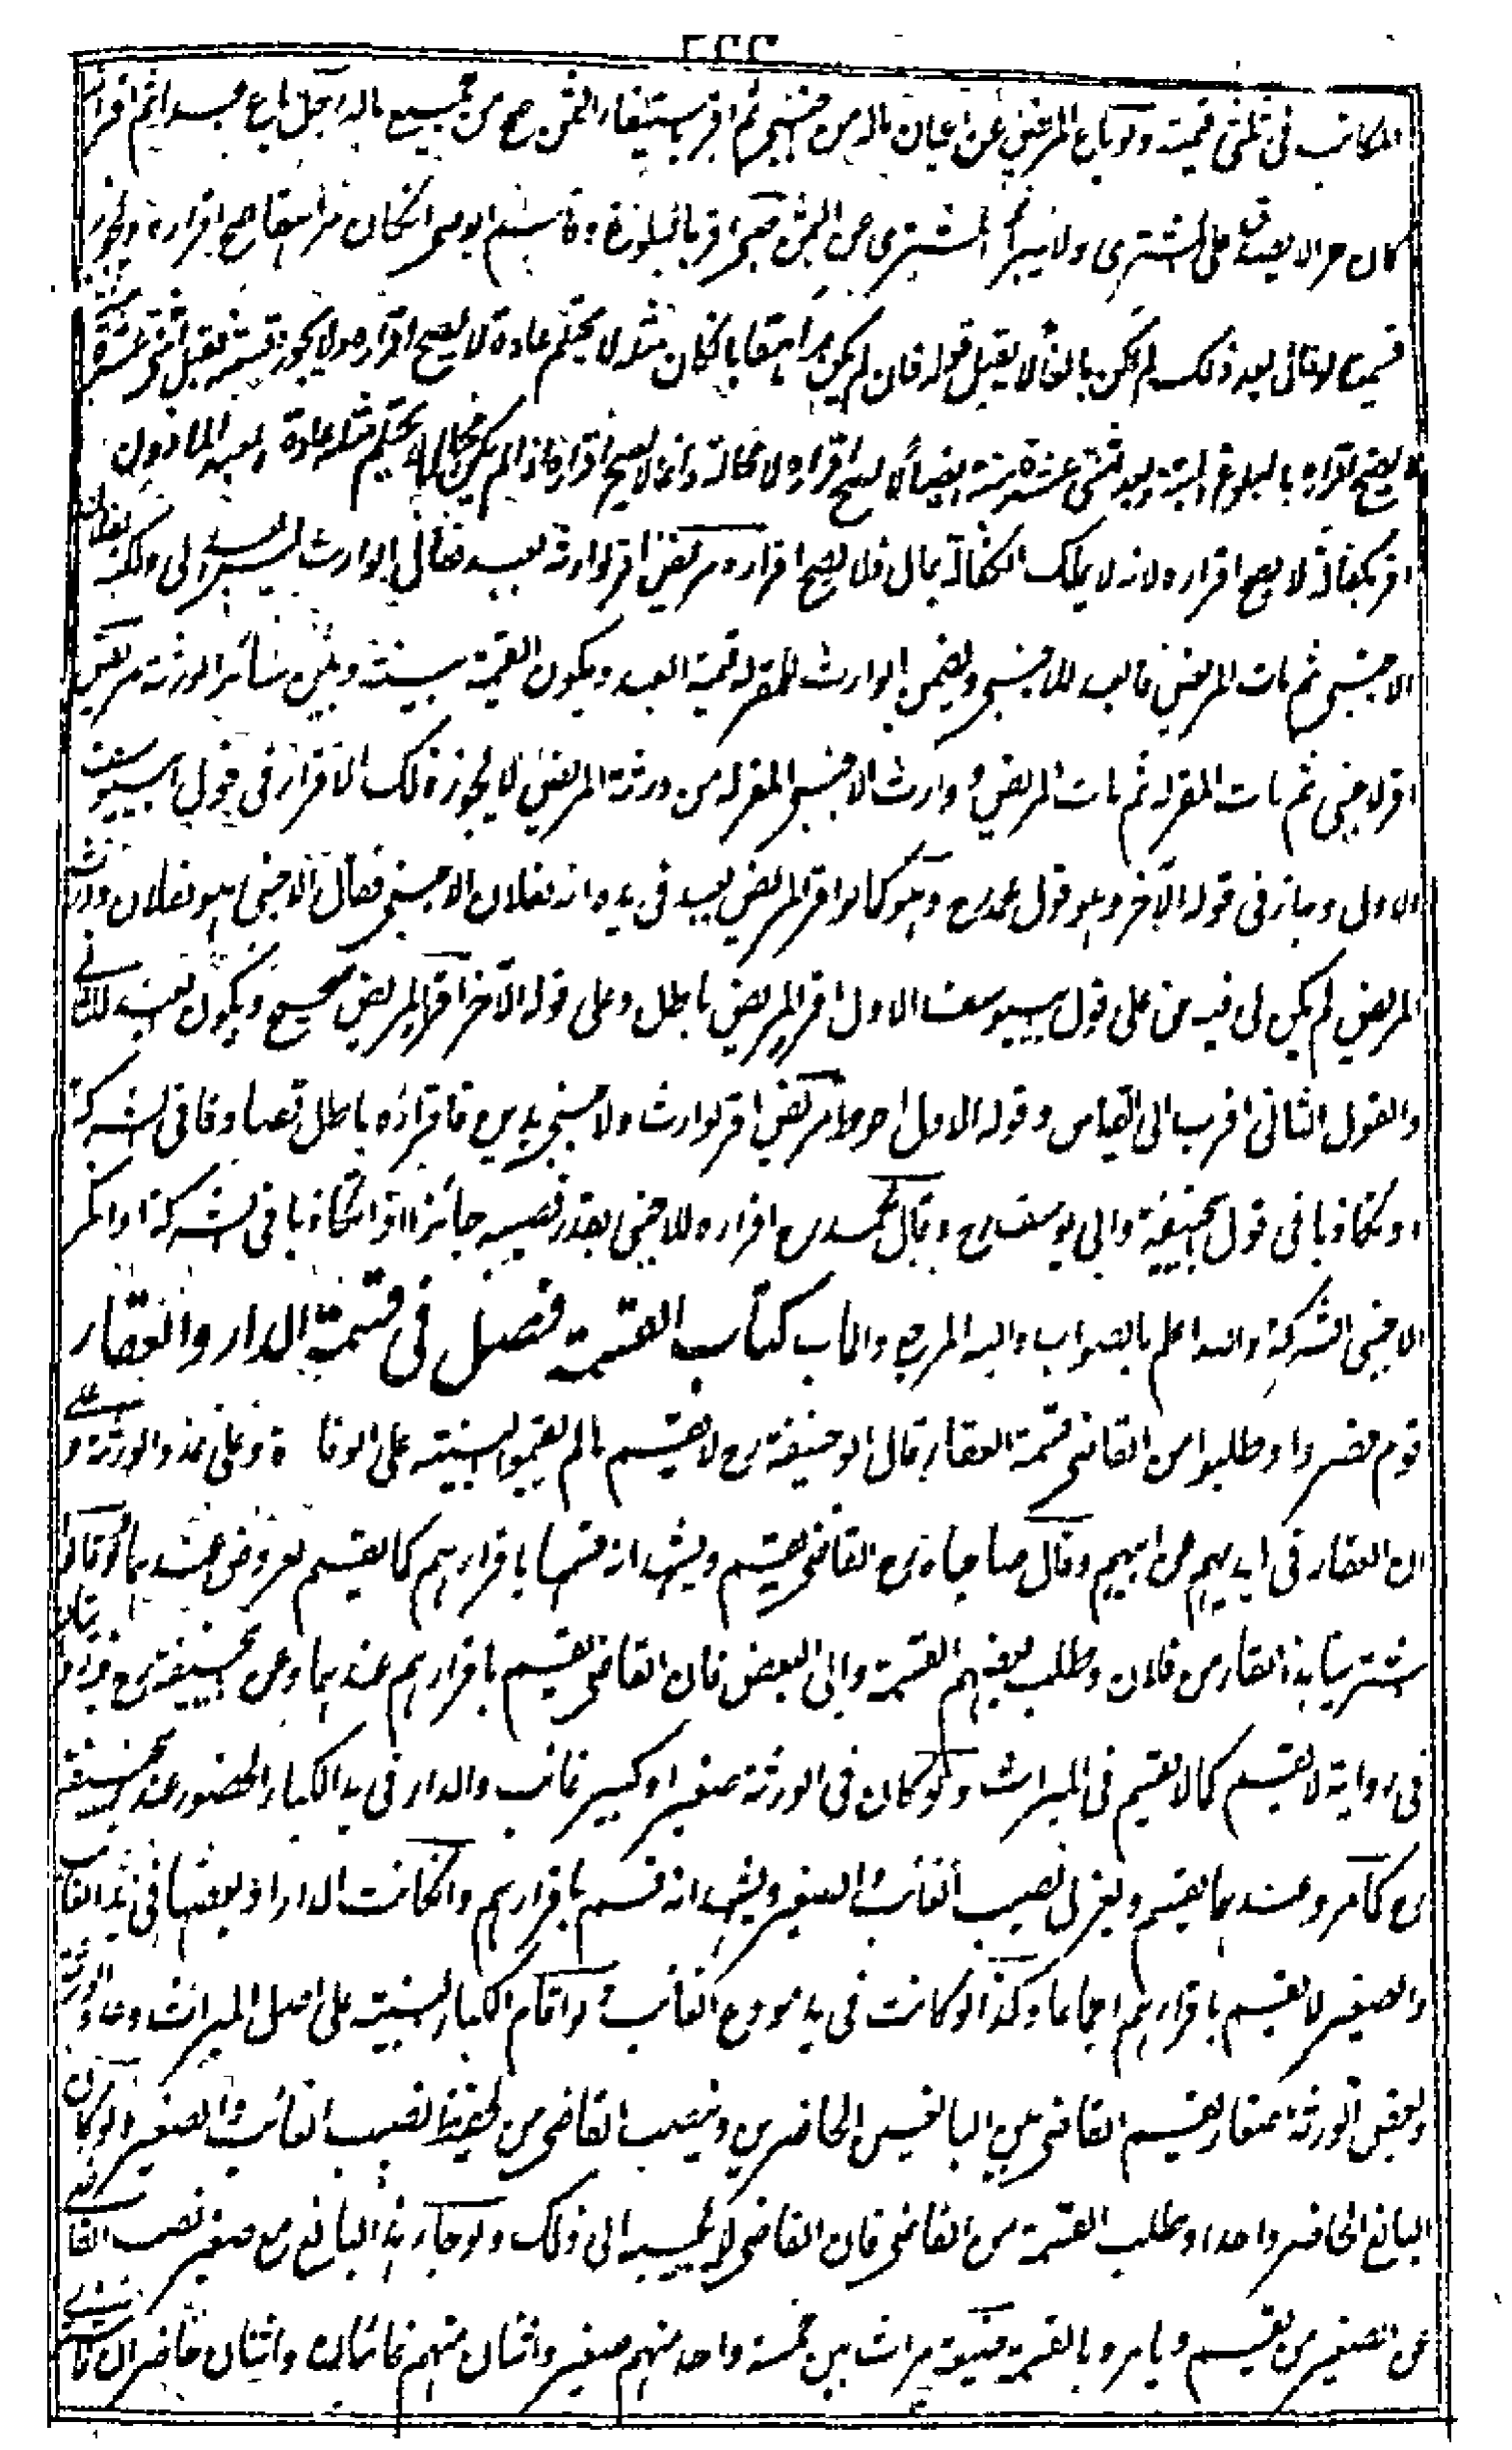 المكاتب فى ثلثى قيمته ولو باع المريض عن اعيان ماله من اجنبى ثم اقر باستيفاء الثمن صح من جميع ماله رجل باع عبدا ثم اقر انه
كان حرا لا يعتق على المشترى ولا يبرأ المشترى عن الثمن صبى اقر بالبلوغ وقاسم الوصى انكان مراهقا صح اقراره وتجوز
قسمته ولو قال بعد ذلك لم اكن بالغا لا يقبل قوله فان لم يكن مراهقا بانكان مثله لا يحتلم عادة لا يصح اقراره ولا يجوز قسمته فقبل اثنتى عشرة
لا يصح اقراره بالبلوغ البتة وبعد اثنتى عشرة سنة ايضا لا يصح اقراره لا محالة وانما لا يصح اقراره اذا لم يكن بحال يحتلم مثله عادة العبد الماذون
اقر بكفالة لا يصح اقراره لانه لا يملك الكفالة بمال فلا يصح اقراره مريض اقر لوارثه بعبد فقال الوارث ليس العبد لى ولكنه لفلان
الاجنبى ثم مات المريض فالعبد للاجنبى ويضمن الوارث المقر له قيمة العبد ويكون القيمة بينه وبين سائر الورثة مريض
اقر لاجنبى ثم مات المقر له ثم مات المريض ووارث الاجنبى المقر له من ورثة المريض لا يجوز ذلك الاقرار فى قول ابى يوسف
الاول وجاز فى قوله الآخر وهو قول محمد رح وهو كما لو اقر المريض بعبد فى يده انه لفلان الاجنبى فقال الاجنبى هو لفلان وارث
المريض لم يكن لى فيه حق على قول ابى يوسف الاول اقرار المريض باطل وعلى قوله الآخر اقرار المريض صحيح ويكون العبد للثانى
والقول الثانى اقرب الى القياس وقوله الاول احوط مريض اقر لوارث ولاجنبى بدين فاقراره باطل تصادقا فى الشركة
او تكاذبا فى قول ابى حنيفة وابى يوسف رح وقال محمد رح اقراره للاجنبى بقدر نصيبه جائز اذا تكاذبا فى الشركة او انكر
الاجنبى الشركة والله اعلم بالصواب واليه المرجع والماب كتاب القسمة فصل فى قسمة الدار والعقار
قوم حضروا وطلبوا من القاضى قسمة العقار قال ابو حنيفة رح لا يقسم ما لم يقيموا البينة على الوفاة وعلى عدد الورثة وعلى
ان العقار فى ايديهم من ابيهم وقال صاحباه رح القاضى يقسم ويشهد انه قسمها باقرارهم كما يقسم العروض عندهما ولو قالوا
اشترينا هذا العقار من فلان وطلب بعضهم القسمة وابى البعض فان القاضى يقسم باقرارهم عندهما وعن ابى حنيفة رح روايتان
فى رواية لا يقسم كما لا يقسم فى الميراث ولو كان فى الورثة صغير او كبير غائب والدار فى يد الكبار الحضور عند ابى حنيفة
رح كما مر وعندهما يقسم ويعزل نصيب الغائب والصغير ويشهد انه قسم باقرارهم وان كانت الدار او بعضها فى يد الغائب
والصغير لا يقسم باقرارهم اجماعا وكذا لو كانت فى يد مودع الغائب ولو اقام الكبار البينة على اصل الميراث وعدد الورثة
وبعض الورثة صغار يقسم القاضى بين البالغين الحاضرين وينصب القاضى من يحفظ نصيب الغائب والصغير ولو كان
البالغ الحاضر واحدا وطلب القسمة من القاضى فان القاضى لا يجيبه الى ذلك ولو جاء هذا البالغ مع صغير نصب القاضى
عن الصغير من يقسم ويامره بالقسمة ضيعة ميراث بين خمسة واحد منهم صغير واثنان منهم غائبان واثنان حاضران